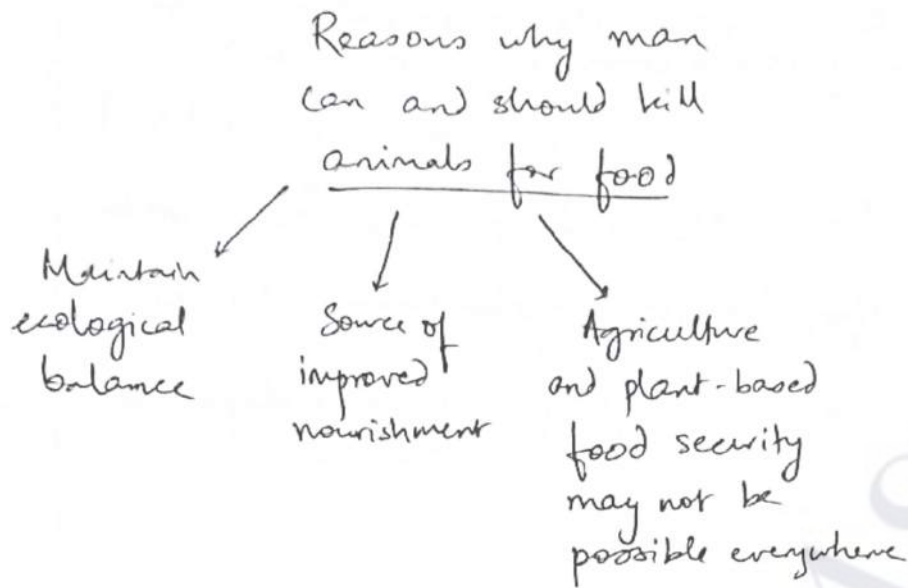 Reasons why man
can and should kill
animals for food
Maintain
ecological
balance
Source of
improved
nourishment
Agriculture
and plant-based
food security
may not be
possible everywhere